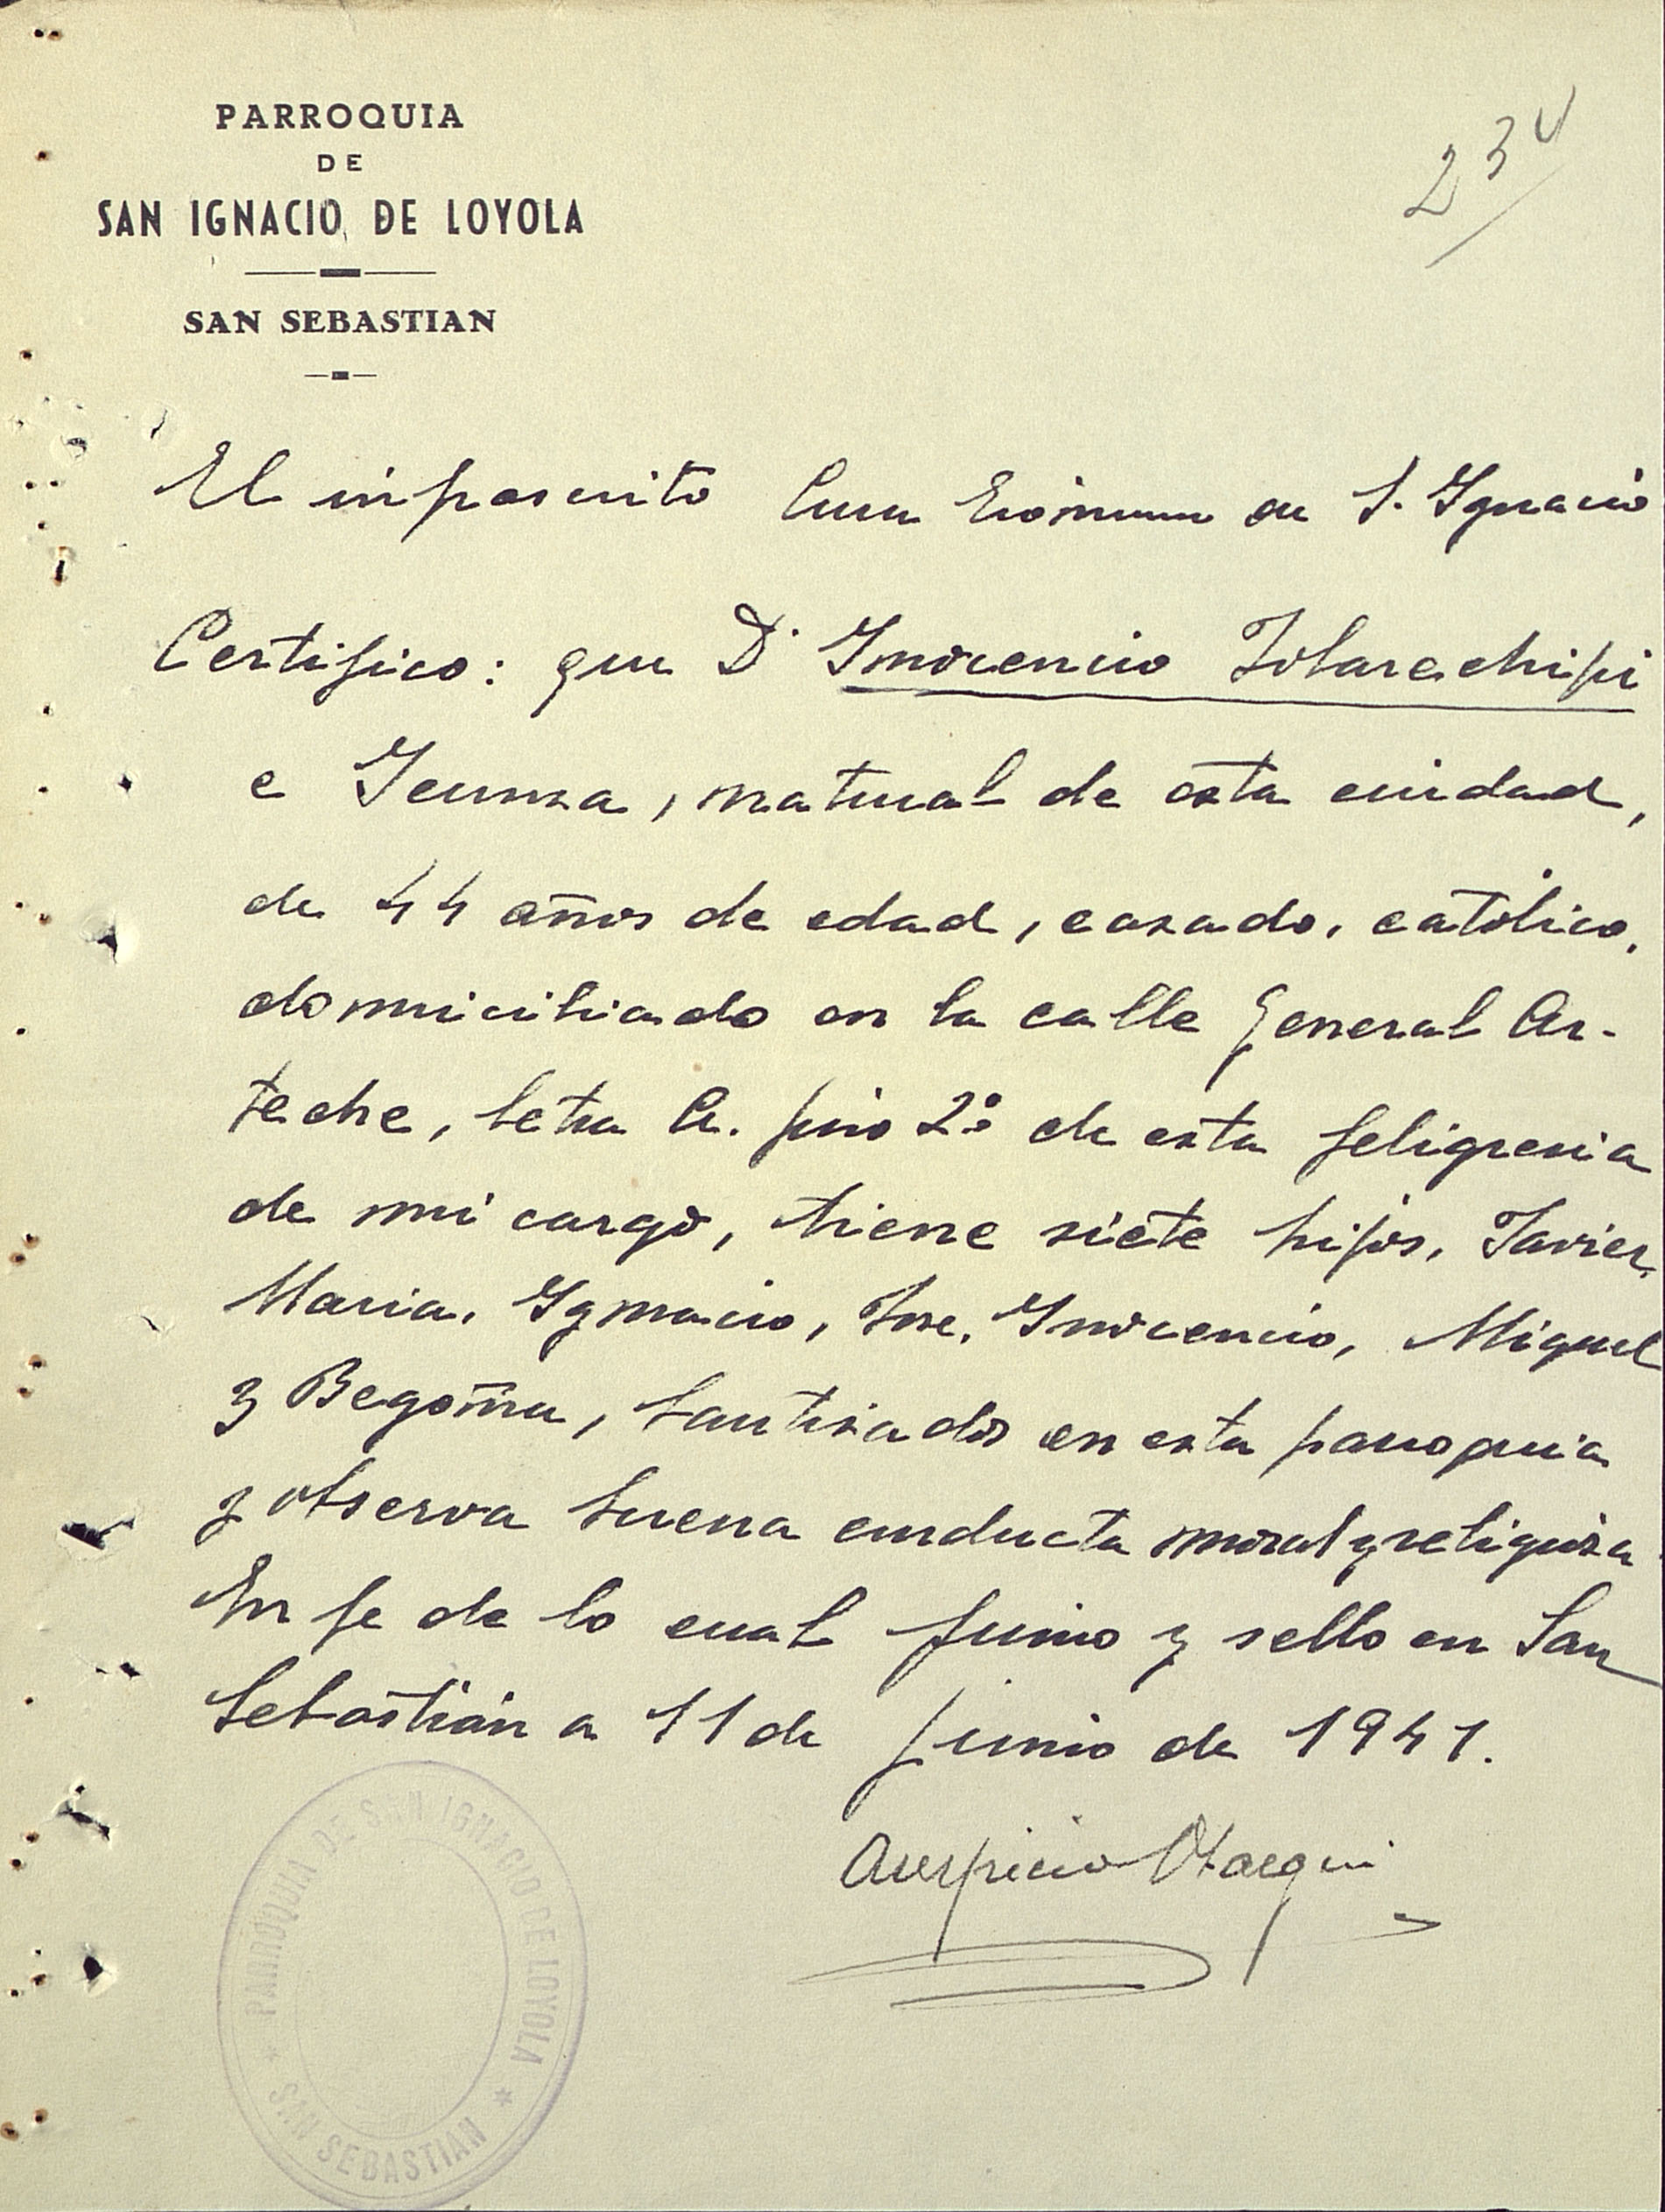 PARROQUIA
DE
SAN IGNACIO DE LOYOLA
SAN SEBASTIAN
234
El infrascrito Cura Ecónomo de S. Ignacio
Certifico: que D. Inocencio Tolarechipi
e , natural de esta ciudad,
de 44 años de edad, casado, católico,
domiciliado en la calle General Ar-
teche, letra A. piso 2º de esta feligresia
de mi cargo, tiene siete hijos, Javier,
Maria, Ignacio, Jose, Inocencio, Miguel
y Begoña, bautizados en esta parroquia
y observa buena conducta moral y religiosa
En fe de lo cual firmo y sello en San
Sebastián a 11 de junio de 1941.
Auspicio Otaegui
PARROQUIA DE SAN IGNACIO DE LOYOLA
* SAN SEBASTIAN *